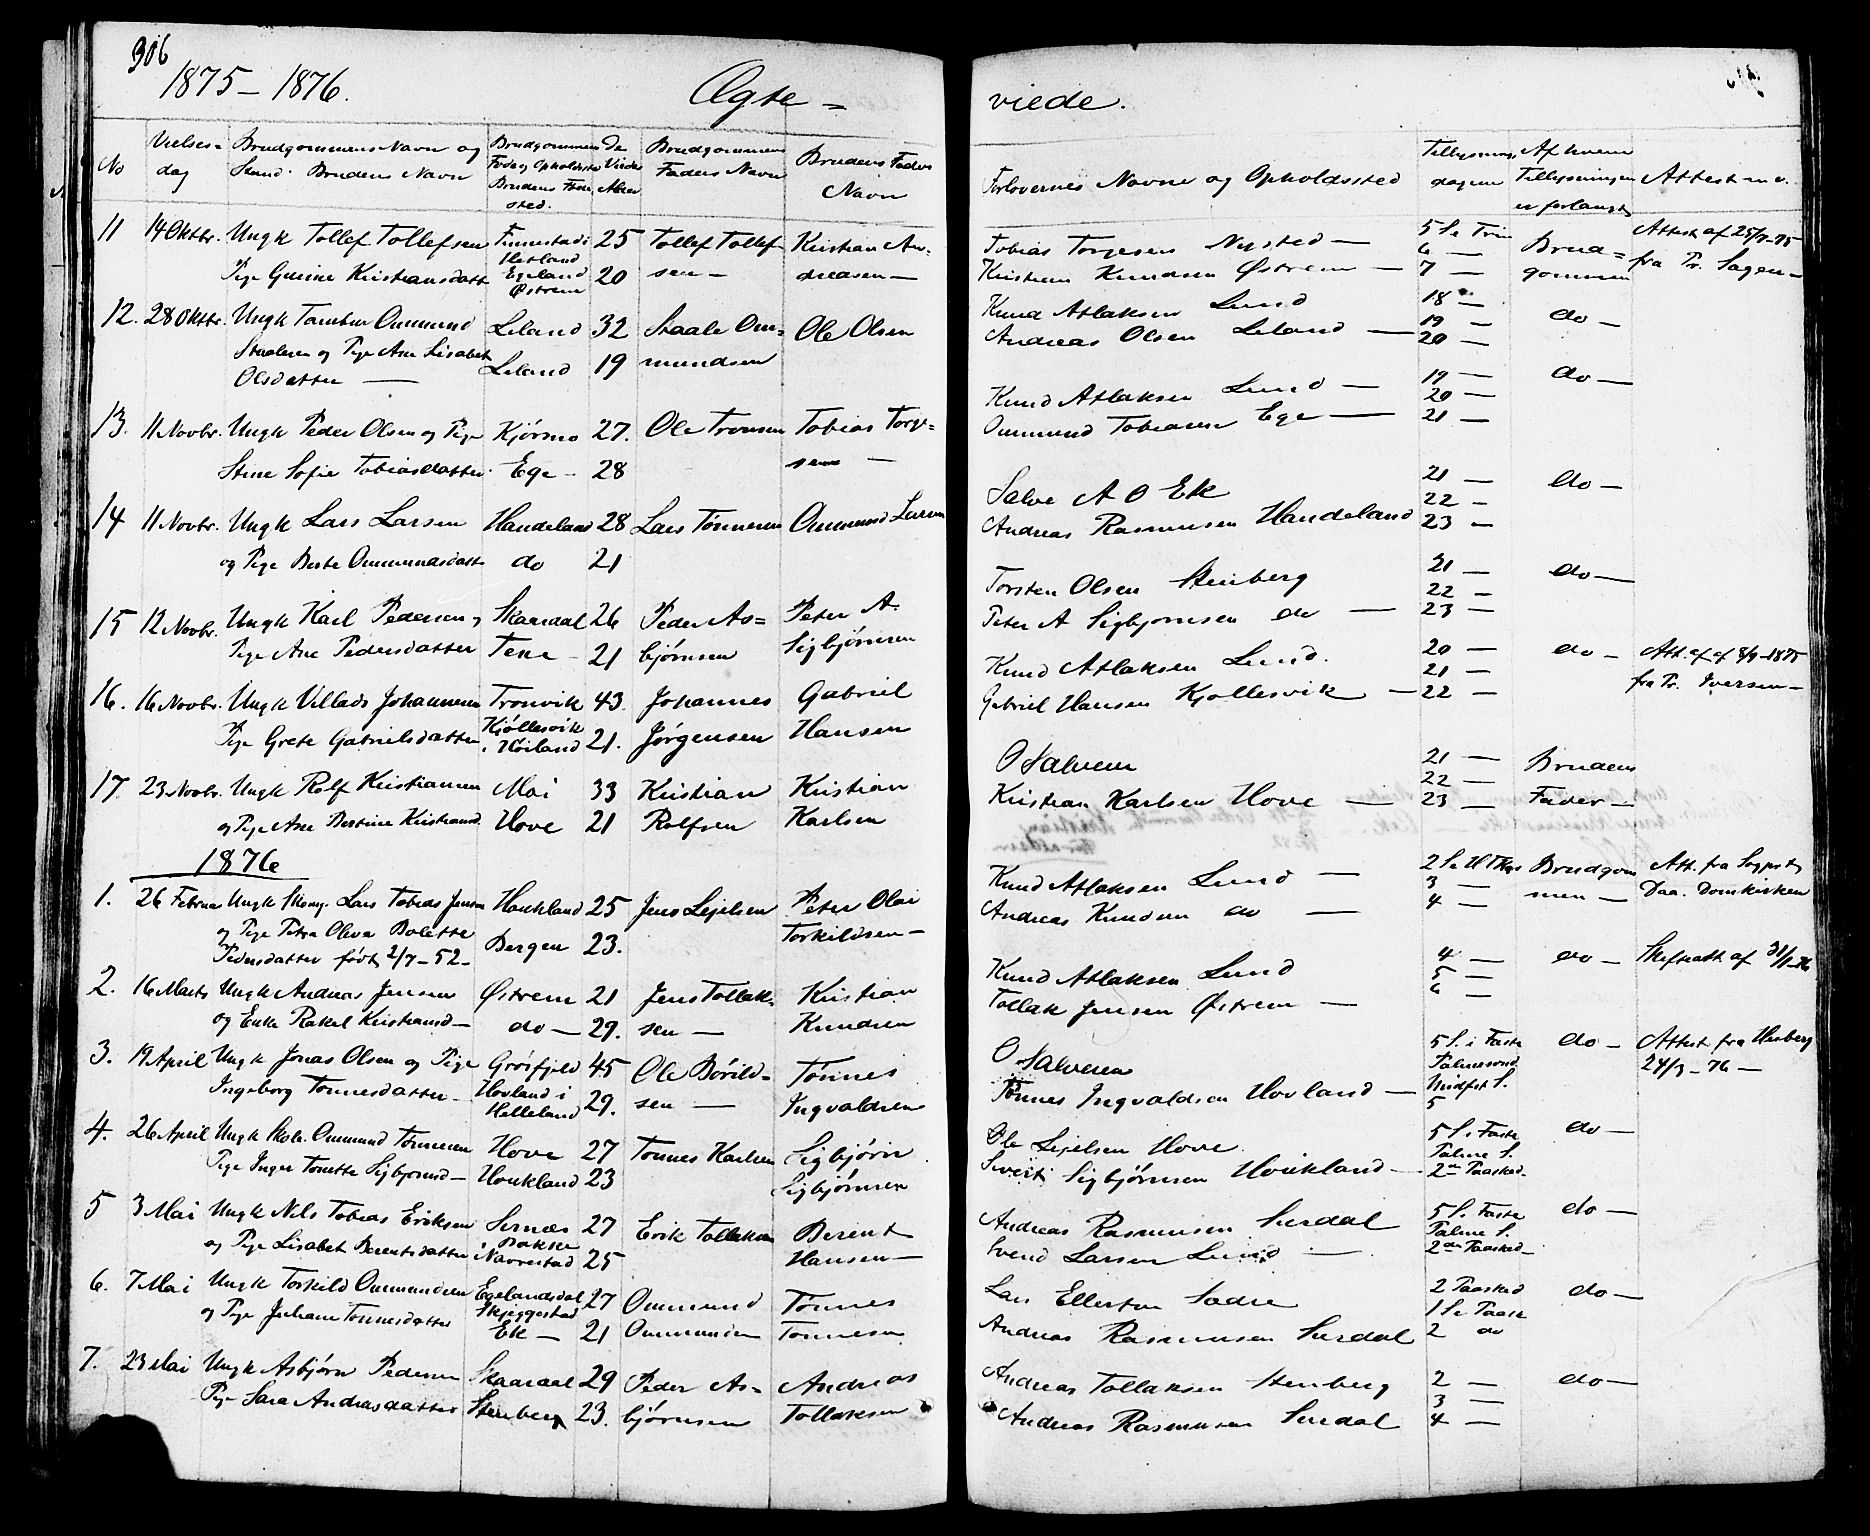 306
1875 – 1876.
Ægte =
viede.
No
Vielses= dag
Brudgommens Navn og Stand. Brudens Navn
Brudgommens Føde og Opholdssted Brudens Fødested.
De Viedes Alder
Brudgommens Faders Navn
Brudens Faders Navn
Forlovernes Navne og Opholdssted
Tillysnings dagene
Af hvem Tillysningen er forlangt
Attest m. v.
11 14 Oktbr. Ungk Tollef Tollefsen Finnestad i Hetland 25 Tollef Tollef- Kristian An- Tobias Torgesen Nysted — 5 S e Trin Brud= Attest af 25/9-75
Pige Gurine Kristiansdatt Egeland Østrem 20 sen – dreasen — Kristian Knudsen Østrem — 6 — 7 — gommen fra Pr. Sagen –
12. 28 Oktbr. Ungk Tambur Ommund Leland 32 Staale Om= Ole Olsen Knud Atlaksen Lund 18 — do —
Staalesen og Pige Ane Lisabet Leland 19 mundsen Andreas Olsen Leland — 19 — 20 —
Olsdatter —
13. 11 Novbr. Ungk Peder Olsen og Pige Kjørmo 27. Ole Tronsen Tobias Torge= Knud Atlaksen Lund — 19 — 20 — do —
Stine Sofie Tobiasdatter Ege – 28 sen — Ommund Tobiasen Ege — 21 —
14 11 Novbr. Ungk Lars Larsen Handeland 28 Lars Tønnesen Ommund Larsen Salve A O Ek 21 — 22 – do —
og Pige Berte Ommundsdatt do 21 Andreas Rasmussen Handeland 23 —
15 12 Novbr. Ungk Karl Pedersen Skaaraal 26 Peder As= Peter A. Torsten Olsen Stenberg 21 — 22 – do —
Pige Ane Pedersdatter Tene – 21 bjørnsen Sigbjørnsen Peter A Sigbjørnsen do — 23 —
16. 16 Novbr. Ungk Villads Johannesen Tronvik 43 Johannes Gabriel Knud Atlaksen Lund. 20 — 21 — do – Att. af 8/9-1875
Pige Grete Gabrielsdatter Kjøllesvik i Høiland 21. Jørgensen Hansen Gabriel Hansen Kjøllesvik — 22 — fra Pr. Iversen –
17. 23 Novbr. Ungk Rolf Kristiansen Moi 33 Kristian Kristian O Salvesen 21 — 22 — Brudens
og Pige Ane Bertine Kristiansd. Hove 21 Rolfsen Karlsen Kristian Karlsen Hove — 23 — Fader —
1876
1. 26 Februar Ungk Lars Tobias Jensen Haukland 25 Jens Lejelsen Peter Olai Knud Atlaksen Lund — 2 S e H T Kgs 3 — Brudgom Att. fra Sogpst
og Pige Petra Oliva Bolette Bergen 23. Torkildsen — Andreas Knudsen do — 4 — men — Daa. Domkirken
Pedersdatter født 2/7-52–
2. 16 Marts Ungk Andreas Jensen Østrem 21 Jens Tollak- Kristian Knud Atlaksen Lund 4 — 5 — do – Skifteatt af 31/1-76
og Enke Rakel Kristiansd — do — 29. sen — Knudsen Tollak Jensen Østrem — 6 —
3. 19 April Ungk Jonas Olsen og Pige Grøsfjeld 45 Ole Børild= Tønnes O Salvesen 5 S. i Faste Palmesønd do – Attest fra Heskestad
Ingeborg Tønnesdatter – Hovland i Helleland 29. sen — Ingvaldsen Tønnes Ingvaldsen Hovland — 24/3-76 —
4. 26 April Ungk Ommund Tønnesen Hove 27 Tønnes Karlsen Sigbjørn Ole Lejelsen Hove 5 S. i Faste Palme S. do —
Pige Inger Tonette Sigbjørnsd — Houkland 23 Sigbjørnsen Sivert Sigbjørnsen Houkland – 2den Paaskd.
5 3 Mai Ungk Nils Tobias Eriksen Sirnæs 27 Erik Tollaksen Berent Andreas Rasmussen Surdal 5 S. Faste Palme S. do —
og Pige Lisabet Berentsdatter Bakke i Navrestad 25 Hansen — Svend Larsen Lund — 2den Paaskd –
6. 7 Mai Ungk Torkild Ommundsen Egelandsdal Skjeggestad 27 Ommund Tønnes Lars Ellertsen Sadre 2 Paaskd 1 S e Paask do —
og Pige Juliane Tønnesdatter Ek — 21 Ommundsen Tønnesen Andreas Rasmussen Surdal 2 do
7. 23 Mai Ungk Asbjørn Pedersen Skaaraal 29 Peder As= Andreas Andreas Tollaksen Stenberg 2 — 3 — do —
Pige Sara Andreasdatter Stenberg 23. bjørnsen Tollaksen Andreas Rasmussen Surdal 4 —